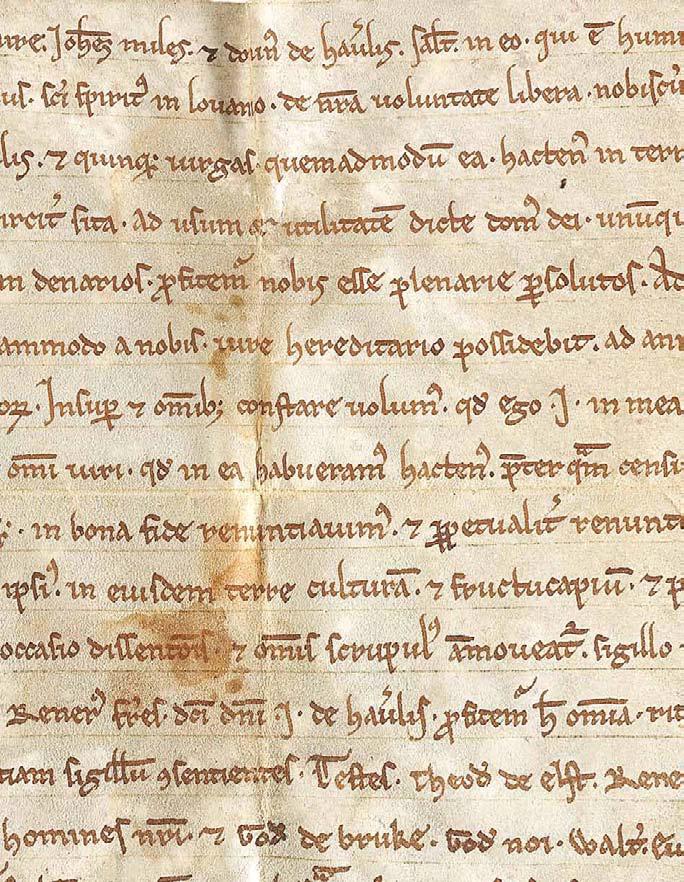 Joh̄es miles. ⁊ domꝰ de hau̓lis. Salt̄. in eo. qui ē humi
us. sc̄i spiritꝰ in louanio. de nr̄a uoluntate libera. nobiscū
lis. ⁊ quinqꝫ uirgas. quemadmodū ea. hactenꝰ in terr
sita. Ad usum ⁊ utilitatē dicte domꝰ dei. unūqu
m denarios. ꝓfitemꝰ nobis esse plenarie ꝑsolutos. Ad
ammodo a nobis. iure hereditario possidebit. ad ann
oꝝ. Insuꝑ ⁊ om̄ibꝫ constare uolumꝰ. qd̄ ego .J. in mea
om̄i iuri. qd̄ in ea habueramꝰ hactenꝰ. p̄ter qm̄ censu
in bona fide renuntiauimꝰ. ⁊ ꝑpetualit̓ renunti
ipsiꝰ. in eiusdem terre culturā. ⁊ fructucapiū. ⁊ p
occasio dissentionis. ⁊ om̄is scrupulꝰ am̄oueat᷑. sigillo
Renerꝰ fr̄es. dc̄i dn̄i .J. de hau̓lis. ꝓfitemꝰ h̄ om̄ia. rit
tiam sigillū ꝯsentientes. Testes. Theod̄ de elst. Rene
homines nr̄i. ⁊ God̄ de bruke. God̄ noi. Walt̓. Eu